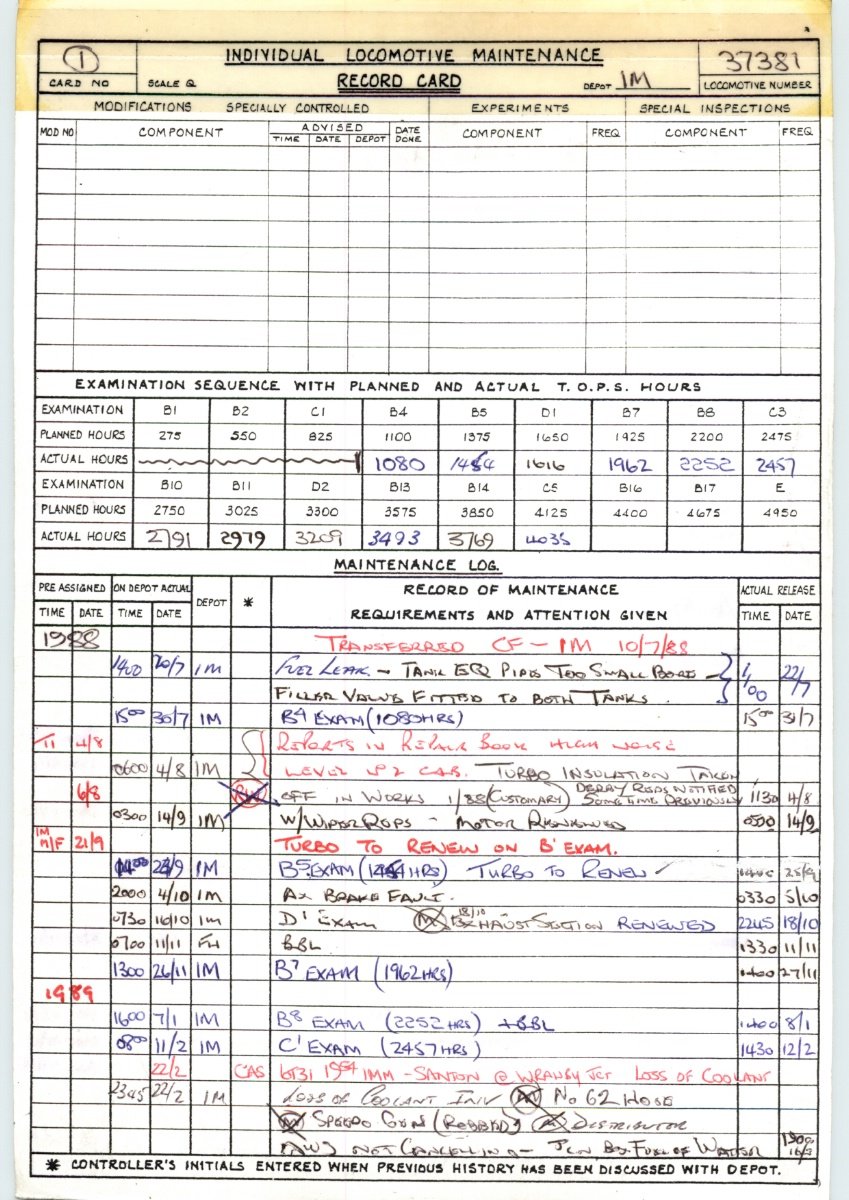 1
CARD NO
SCALE Q
INDIVIDUAL LOCOMOTIVE MAINTENANCE
RECORD CARD
DEPOT IM
37381
LOCOMOTIVE NUMBER
MODIFICATIONS SPECIALLY CONTROLLED EXPERIMENTS SPECIAL INSPECTIONS
MOD NO COMPONENT ADVISED DATE DONE COMPONENT FREQ COMPONENT FREQ
TIME DATE DEPOT
EXAMINATION SEQUENCE WITH PLANNED AND ACTUAL T.O.P.S. HOURS
EXAMINATION B1 B2 C1 B4 B5 D1 B7 B8 C3
PLANNED HOURS 275 550 825 1100 1375 1650 1925 2200 2475
ACTUAL HOURS 1080 1464 1616 1962 2252 2457
EXAMINATION B10 B11 D2 B13 B14 C5 B16 B17 E
PLANNED HOURS 2750 3025 3300 3575 3850 4125 4400 4675 4950
ACTUAL HOURS 2791 2979 3209 3493 3769 4035
MAINTENANCE LOG.
PRE ASSIGNED ON DEPOT ACTUAL DEPOT * RECORD OF MAINTENANCE ACTUAL RELEASE
TIME DATE TIME DATE REQUIREMENTS AND ATTENTION GIVEN TIME DATE
1988 TRANSFERRED CF - IM 10/7/88
1400 20/7 IM FUEL LEAK - TANK EQ PIPES TOO SMALL BORE 22/7
FILLER VALVE FITTED TO BOTH TANKS.
1500 30/7 IM B4 EXAM (1080HRS) 1500 31/7
TI 4/8 REPORTS IN REPAIR BOOK HIGH NOISE
0600 4/8 IM LEVEL No 2 CAB. TURBO INSULATION TAKEN
6/8 OFF IN WORKS 1/88 (CUSTOMARY) DERBY REPS NOTIFIED SOME TIME PREVIOUSLY 1130 4/8
0300 14/9 IM W/WIPER REPS - MOTOR RENEWED 0500 14/9
IM M/F 21/9 TURBO TO RENEW ON B EXAM.
1400 23/9 IM B5 EXAM (1464 HRS) TURBO TO RENEW 25/9
2000 4/10 IM AX BRAKE FAULT. 0330 5/10
0730 16/10 IM D1 EXAM 18/10 EXHAUST SECTION RENEWED 2245 18/10
0700 11/11 FH BBL 1330 11/11
1300 26/11 IM B7 EXAM (1962HRS) 1400 27/11
1989
1600 7/1 IM B8 EXAM (2252 HRS) + BBL 1400 8/1
0800 11/2 IM C1 EXAM (2457HRS) 1430 12/2
22/2 CAS 6T31 1954 IMM - SANTON @ WRAWBY JCT LOSS OF COOLANT
2345 22/2 IM LOSS OF COOLANT INV No 62 HOSE
SPEEDO GEN (ROBBED) DISTRIBUTOR
AWS NOT CANCELLING - FUEL OF WATER
* CONTROLLER'S INITIALS ENTERED WHEN PREVIOUS HISTORY HAS BEEN DISCUSSED WITH DEPOT.